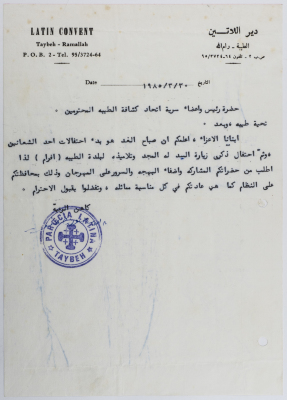 LATIN CONVENT
Taybeh - Ramallah
P. O. B. 2 - Tel. 95/3724-64
دير اللاتـــين
الطيبة - رام الله
ص.ب ٢ - تلفون ٦٤-٩٥/٣٧٢٤
Date
١٩٨٥/٣/٣٠
التاريخ
حضرة رئيس واعضاء سرية اتحاد كشافة الطيبه المحترمين ،
تحية طيبه وبعد ،
ابنائنا الاعزاء ، اعلمكم ان صباح الغد هو بدء احتفالات احد الشعانين
وبدء احتفال ذكرى زيارة السيد له المجد وتلاميذه لبلدة الطيبة ( افرام ) لذا
اطلب من حضراتكم المشاركه واضفاء البهجه والسرور على المهرجان وذلك بمحافظتكم
على النظام كما هي عادتكم في كل مناسبة مماثله ، وتفضلوا بقبول الاحترام ،
كاهن الرعية
PAROECIA LATINA
TAYBEH